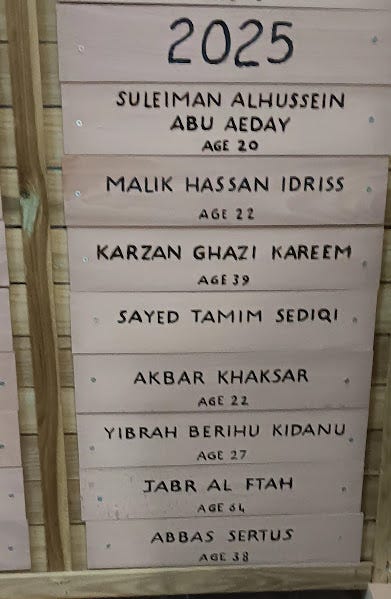 2025
SULEIMAN ALHUSSEIN
ABU AEDAY
AGE 20
MALIK HASSAN IDRISS
AGE 22
KARZAN GHAZI KAREEM
AGE 39
SAYED TAMIM SEDIQI
AKBAR KHAKSAR
AGE 22
YIBRAH BERIHU KIDANU
AGE 27
JABR AL FTAH
AGE 64
ABBAS SERTUS
AGE 38